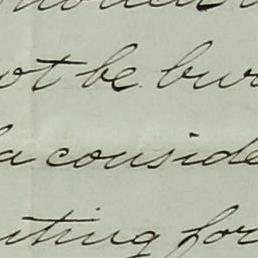 ot be bur
a conside
iting for